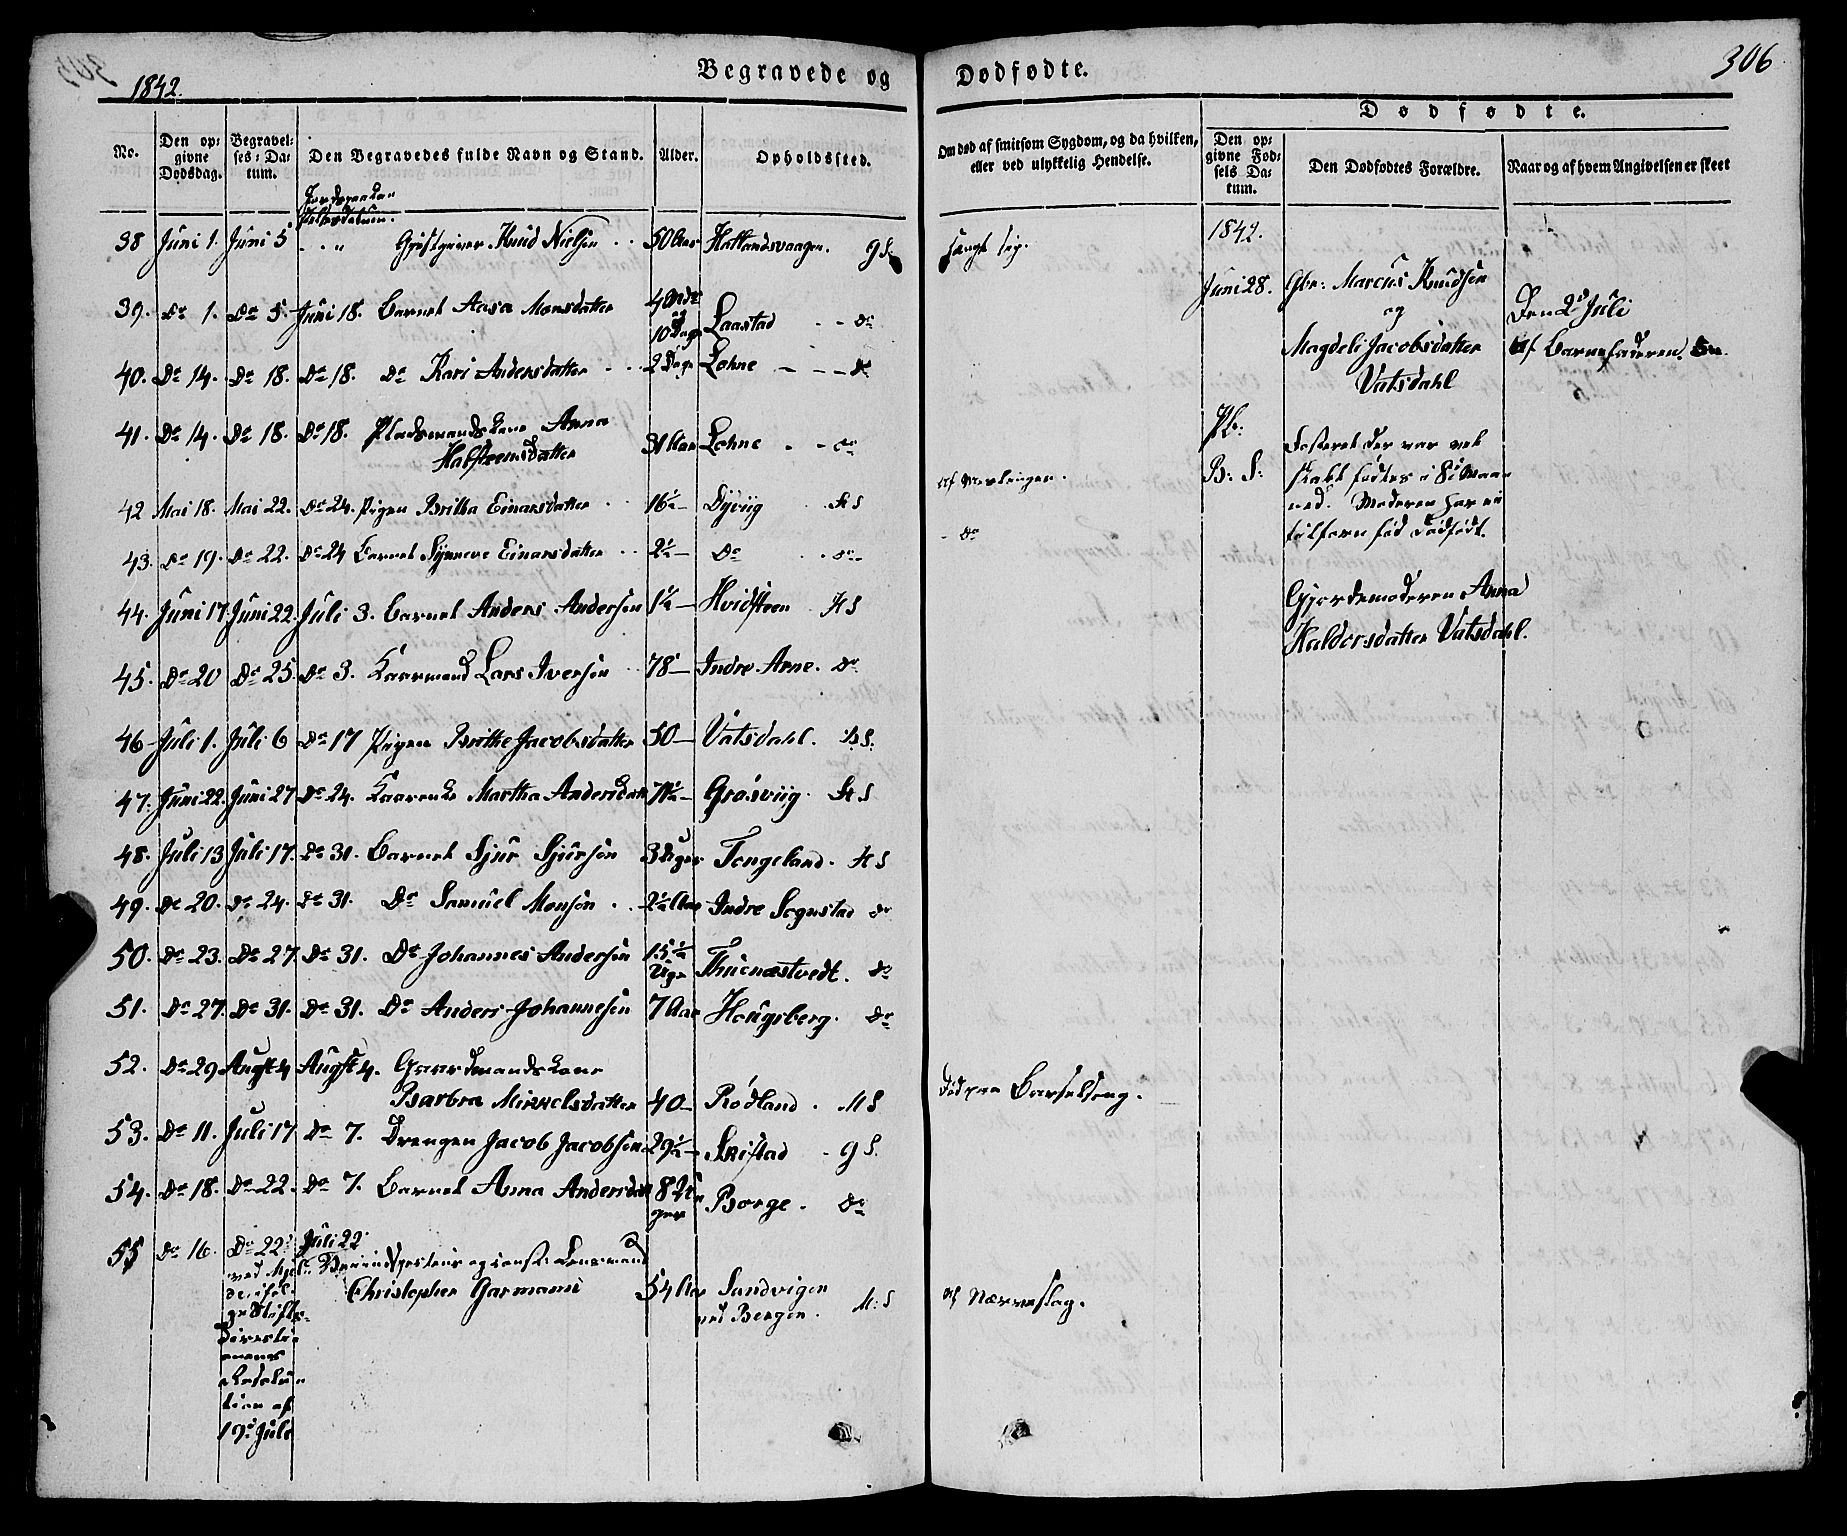 1842.
Begravede og
No.
Den op-
givne
Dødsdag.
Begravel-
ses-Da-
tum.
Den Begravedes fulde Navn og Stand.
Alder.
Opholdssted.
38 Juni 1. Juni 5 Knud Nielsen 50 Aar Hatlandsvaagen. G S.
39. Do 1. Do 5. Juni 18. Barnet Aasa Monsdatter
10 Dage Laastad Do
40. Do 14. Do 18. Do 18. Do Kari Andersdatter 2 Dage Lohne Do
41. Do 14. Do 18. Do 18. Pladsmandskone Anna
Lohne Do
42 Mai 18. Mai 22. Do 24. Pigen Britha Einarsdatter 16½ Dyviig H S
43. Do 19. Do 22. Do 24 Barnet Synneve Einarsdatter 2½ Do Do
44. Juni 17. Juni 22. Juli 3. Barnet Anders Andersen Hvidsteen H S
45. Do 20 Do 25. Do 3. Kaarmand Lars Iversen 78 Indre Arne. Do
46 Juli 1. Juli 6 Do 17 Pigen Brithe Jacobsdatter 50 Vatsdahl. B S.
47. Juni 22. Juni 27 Do 24. Martha Andersdatt Grøsviig. H S
48. Juli 13 Juli 17. Do 31. Barnet Sjur Sjursen 3 Uger Tengeland. H S
49. Do 20. Do 24. Do 31. Do Samuel Monsen 2½ Aar Indre Sognstad Do
50. Do 23. Do 27. Do 31. Do Johannes Andersen 15½
Uger Thuenæstvedt. Do
51. Do 27. Do 31. Do 31. Do Anders Johannesen 7 Aar Hougsberg. Do
52. Do 29 Augst 4 Augst 4. Gaardmandskone
Barbra Mikkelsdatter 40 Rødland. M S
53. Do 11. Juli 17 Do 7. Drengen Jacob Jacobsen 29½ G S.
54. Do 18. Do 22. Do 7. Barnet Anna Andersdatt 8 U-
ger Borge. Do
55 Do 16. Do 22. Juli 22
Christopher Garmann 54 Aar Sandvigen
ved Bergen. M: S
19. Juli
Dødfødte.
306
Om død af smitsom Sygdom, og da hvilken,
eller ved ulykkelig Hendelse.
Dødfødte.
Den op-
givne Fød-
sels Da-
tum.
Den Dødfødtes Forældre.
Naar og af hvem Angivelsen er skeet
hængt sig.
1842.
Juni 28. Gbr: Marcus Knudsen
og
Magdeli Jacobsdatter
Vatsdahl
Den 2d Juli
Af Barnefaderen.
B: S:
Fosteret der var vel
skabt fødtes i 8de Maa-
ned. Moderen har ei
tilforn fød dødfødt.
Gjordemoderen Anna
Haldorsdatter Vatsdahl.
Af Meslinger.
Do
Død paa Barselseng.
af Nerveslag.